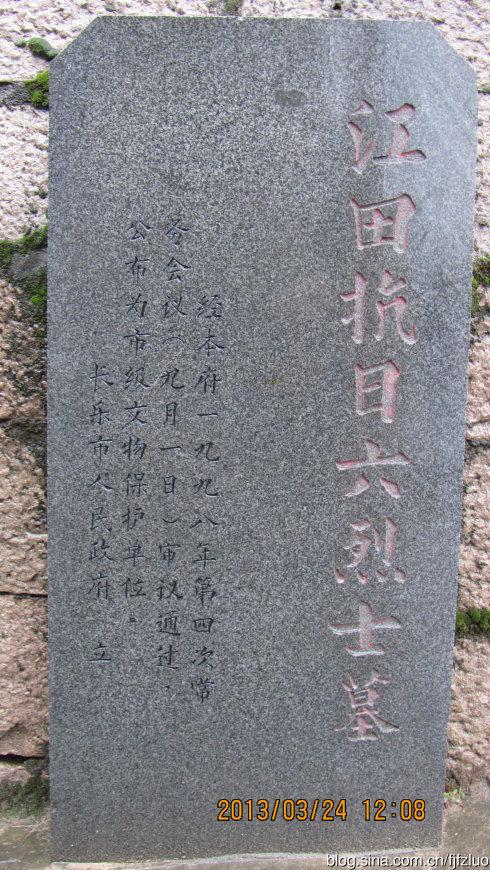 江田抗日六烈士墓
经本府一九九八年第四次常
务会议（九月一日）审议通过，
公布为市级文物保护单位。
长乐市人民政府 立
2013/03/24 12:08
blog.sina.com.cn/fjfzluo